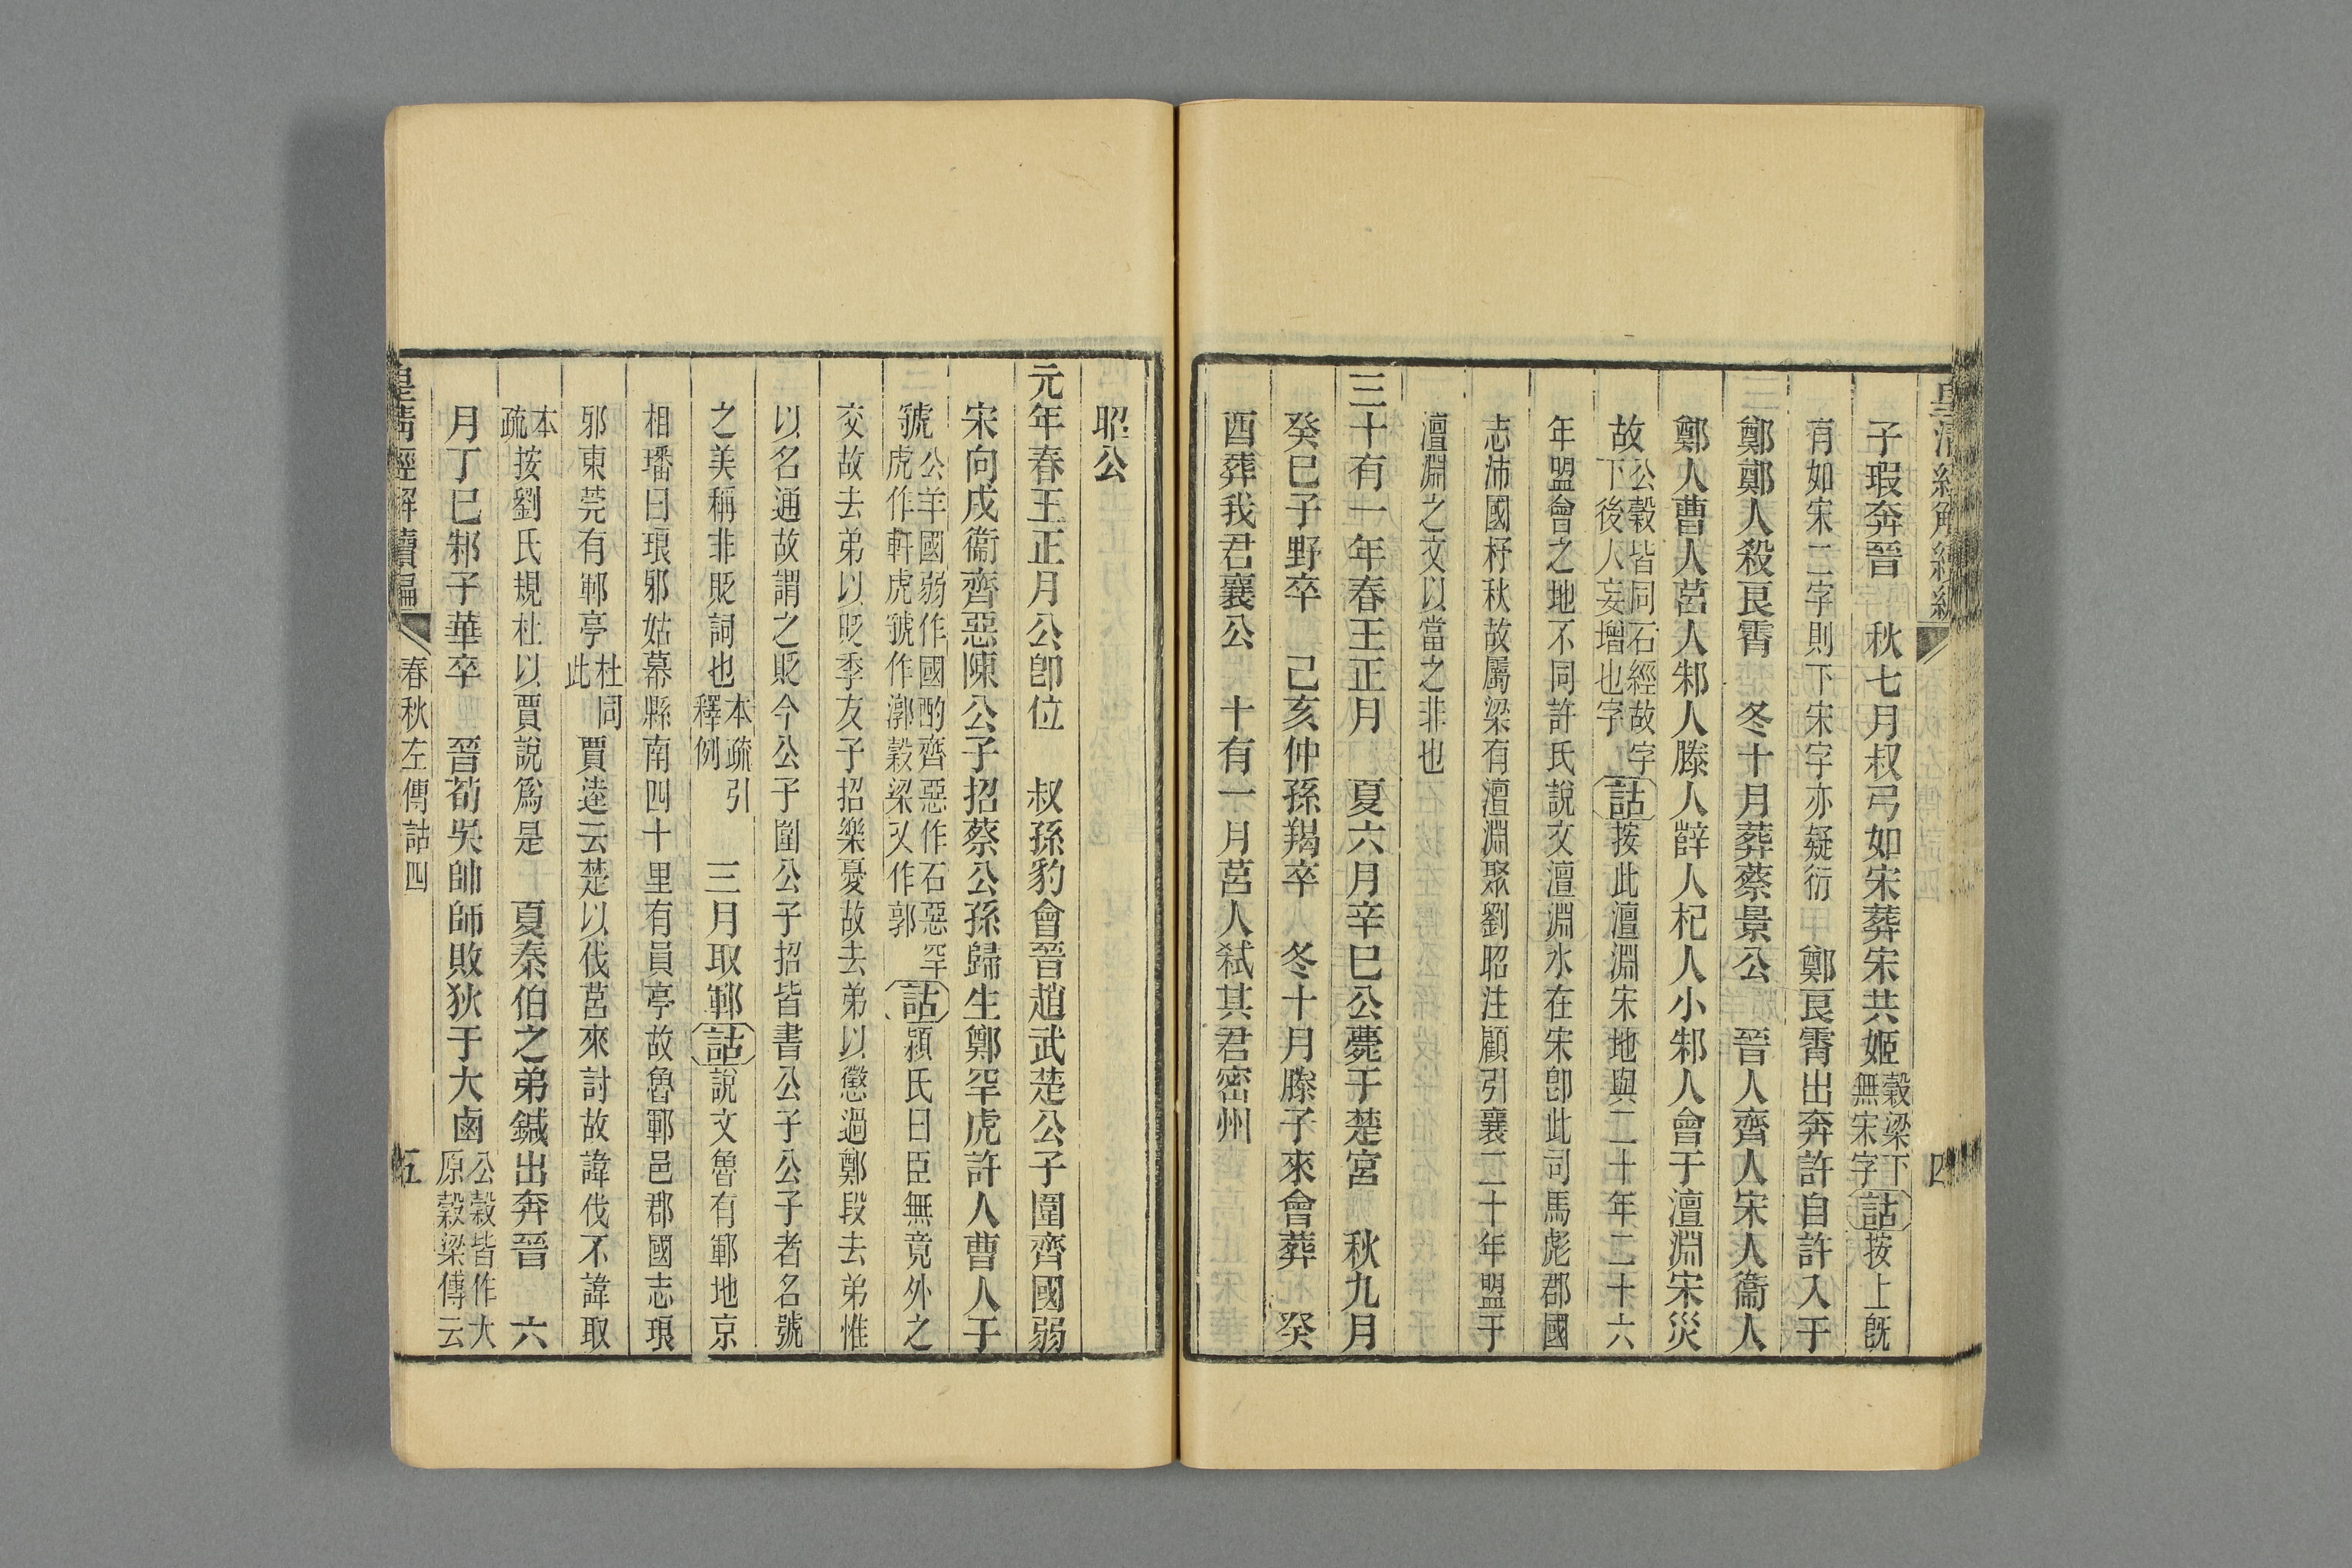 皇清經解續編
四
子瑕奔晉　秋七月叔弓如宋葬宋共姬穀梁下無宋字詁按上旣
有如宋二字則下宋字亦疑衍　鄭良霄出奔許自許入于
鄭鄭人殺良霄　冬十月葬蔡景公　晉人齊人宋人衞人
鄭人曹人莒人邾人滕人薛人杞人小邾人會于澶淵宋災
故公穀皆同石經故字下後人妄增也字詁按此澶淵宋地與二十年二十六
年盟會之地不同許氏說文澶淵水在宋卽此司馬彪郡國
志沛國杼秋故屬梁有澶淵聚劉昭注顧引襄二十年盟于
澶淵之文以當之非也
三十有一年春王正月　夏六月辛巳公薨于楚宮　秋九月
癸巳子野卒　己亥仲孫羯卒　冬十月滕子來會葬　癸
酉葬我君襄公　十有一月莒人弒其君密州
昭公
元年春王正月公卽位　叔孫豹會晉趙武楚公子圍齊國弱
宋向戌衞齊惡陳公子招蔡公孫歸生鄭罕虎許人曹人于
虢公羊國弱作國酌齊惡作石惡罕虎作軒虎虢作漷穀梁又作郭詁潁氏曰臣無竟外之
交故去弟以貶季友子招樂憂故去弟以懲過鄭段去弟惟
以名通故謂之貶今公子圍公子招皆書公子公子者名號
之美稱非貶詞也本疏引釋例　三月取鄆詁說文魯有鄆地京
相璠曰琅邪姑幕縣南四十里有員亭故魯鄆邑郡國志琅
邪東莞有鄆亭杜同此　賈逵云楚以伐莒來討故諱伐不諱取
本疏按劉氏規杜以賈說爲是　夏秦伯之弟鍼出奔晉　六
月丁巳邾子華卒　晉荀吳帥師敗狄于大鹵公穀皆作大原穀梁傳云
皇清經解續編
春秋左傳詁四
五